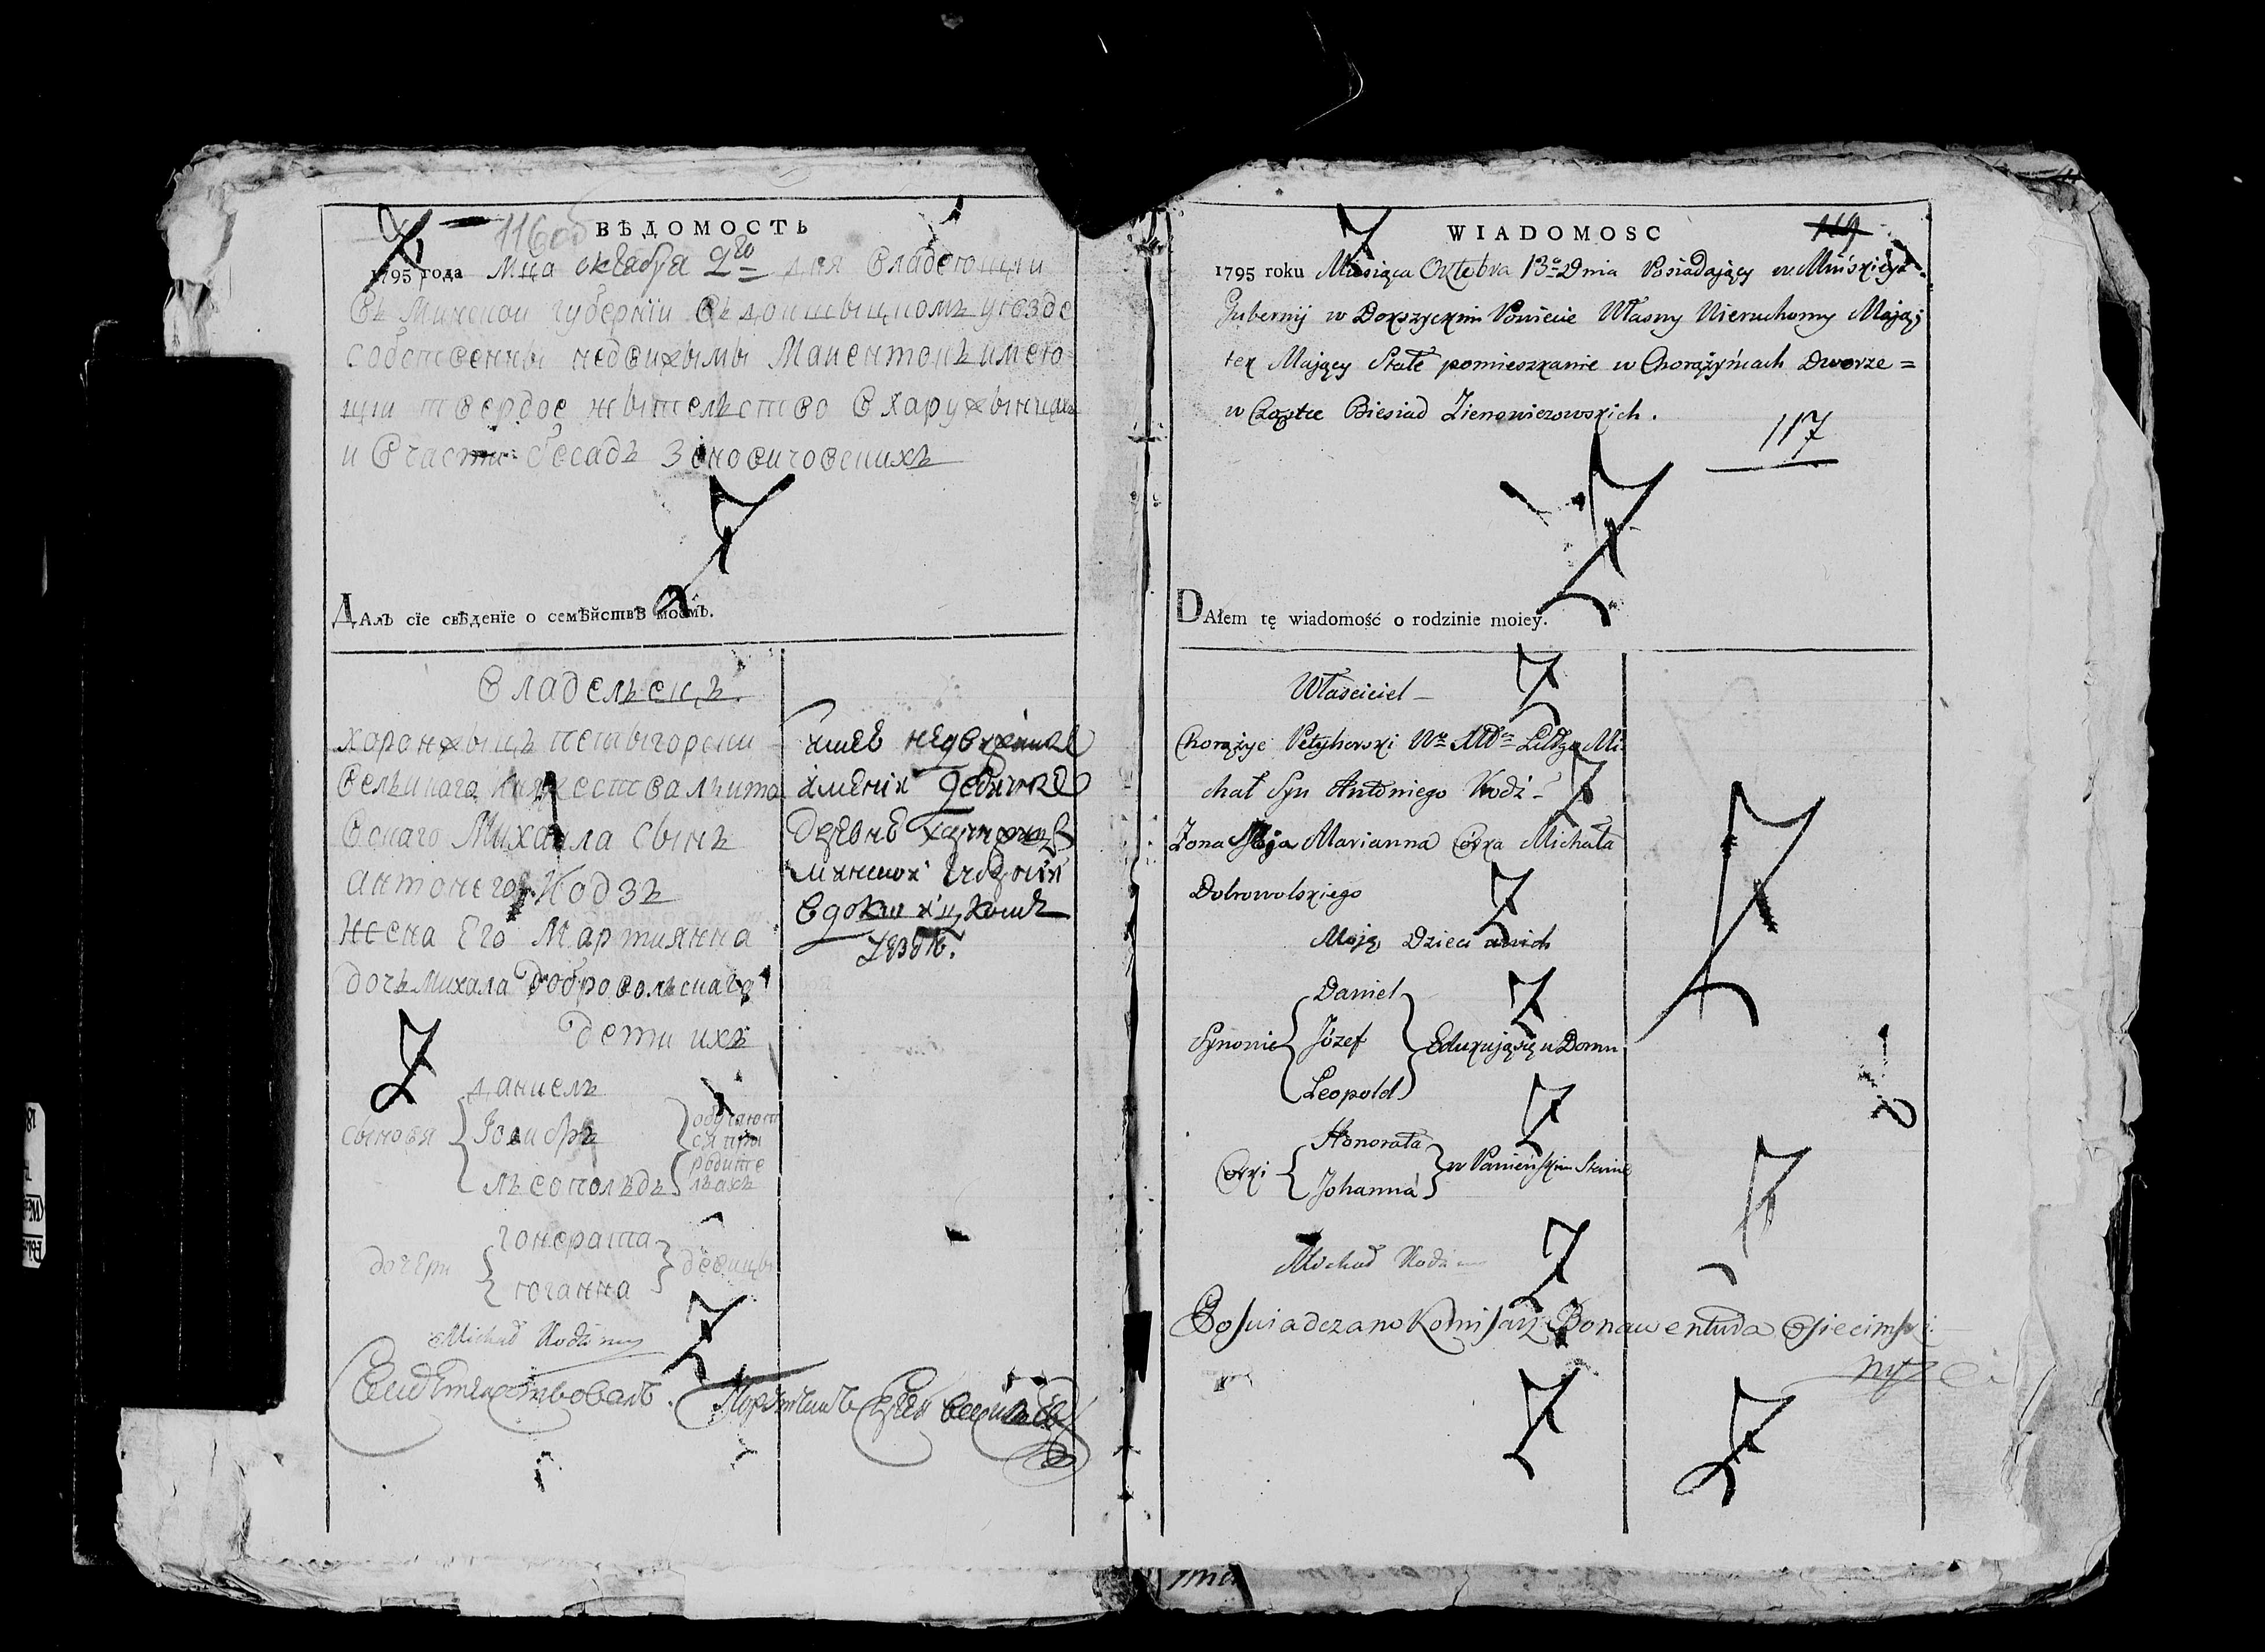 116об
ВѢДОМОСТЬ
1795 года Мца октября 2го дня владеющи
въ Минской губернїи въ докшыцкомъ уезде
собственны недвижымы Маиентокъ имею
щи твердое жытельство в харужынцахъ
и в части бесадъ Зеновичовскихъ
ДАлъ сїе свѣденїе о семѣйствѣ моемъ.
Владелецъ.
харонжыцъ петыгорски
великаго Княжества лито
вскаго Михаила сынъ
антонего Кодзъ
жена Его Мартиянна
дочъ михала Добровольскаго
дети ихъ
даниелъ
сыновя Іозифъ обучаются при родителяхъ
лъеополъдъ
гонората
дочери девицы
юганна
Michał Kodz
имеет недвижимое
имения
деревне
минской губернїи
в докшицкомъ
уезде.
Свидетельствовалъ. Порутчикъ
WIADOMOSC
119
1795 roku Miesiąca Oktobra 13o Dnia Posiadający w Mińskiey
Gubernij w Dokszyckim Powiecie Własny Nieruchomy Mają;
tek Mający Stałe pomieszkanie w Chorążyńcach Dworze=
w Cząstce Biesiad Zienowiczowskich.
117
DAłem tę wiadomość o rodzinie moiey.
Właściciel
Chorążyc Petyhorski Wo Xa Littgo Mi
chał Syn Antoniego Kodź
Zona Moja Marianna Córka Michała
Dobrowolskiego
Mają Dzieci
Daniel
Synowie Józef Edukują się w Domu
Leopold
Honorata
Corki w Panieńskim Stanie
Johanna
Michał Kodz
Poświadczano Komisarz Bonawentura Osiecimski
mpr